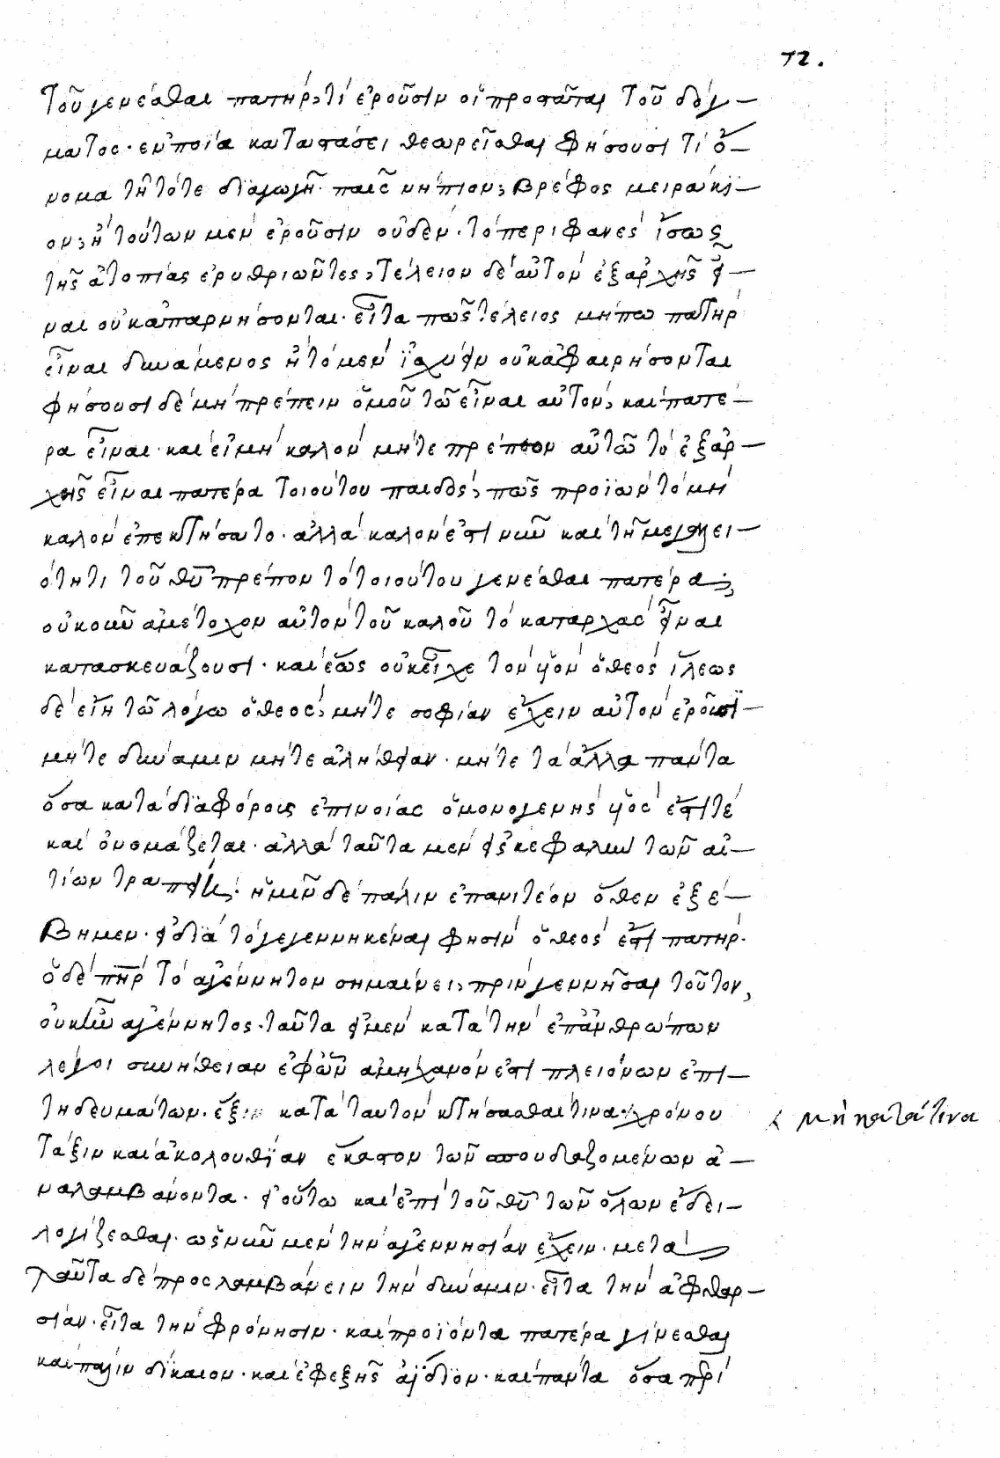 72.
τοῦ γενέσθαι πατήρ, τί ἐροῦσιν οἱ προστάται τοῦ δόγ—
ματος· ἐν ποία καταστάσει θεωρεῖσθαι φήσουσι τί ὄ—
νομα τῆ τότε διαγωγῆ· παῖς νήπιον, βρέφος μειράκι—
ον, ἢ τούτων μὲν ἐροῦσιν οὐδὲν· τὸ περιφανὲς ἴσως
τῆς ἀτοπίας ἐρυθριῶντες, τέλειον δὲ αὐτὸν ἐξαρχῆς εἶ—
ναι οὐκ ἀπαρνήσονται· εἶτα πῶς τέλειος μήπω πατὴρ
εἶναι δυνάμενος ἢ τὸ μὲν ἰσχύειν οὐκ ἀφαιρήσονται
φήσουσι δὲ μὴ πρέπειν ὁμοῦ τῶ εἶναι αὐτὸν, καὶ πατέ—
ρα εἶναι· καὶ εἰ μὴ καλὸν μήτε πρέπον αὐτῶ τὸ ἐξαρ—
χῆς εἶναι πατέρα τοιούτου παιδὸς, πῶς προϊὼν τὸ μὴ
καλὸν ἐπεκτήσατο· ἀλλὰ καλὸν ἐστὶ νῦν καὶ τῆ μεγαλει—
ότητι τοῦ θῦ πρέπον τὸ τοιούτου γενέσθαι πατέρα;
οὐκοῦν ἀμέτοχον αὐτὸν τοῦ καλοῦ τὸ καταρχὰς εἶναι
κατασκευάζουσι· καὶ ἕως οὐκ εἶχε τὸν υἱὸν ὁ θεὸς ἵλεως
δὲ εἴη τῶ λόγω ὁ θεὸς, μήτε σοφίαν ἔχειν αὐτὸν ἐροῦσι—
μήτε δύναμιν μήτε ἀλήθειαν· μήτε τὰ ἄλλα πάντα
ὅσα κατὰ διαφόροις ἐπινοίας ὁ μονογενὴς υἱὸς ἔστι τὲ
καὶ ὀνομάζεται· ἀλλὰ ταῦτα μὲν εἰς κεφαλὴν τῶν αἰ—
τίων τραπείη· ἡμῖν δὲ πάλιν ἐπανιτέον ὅθεν ἐξέ—
βημεν· εἰ διὰ τὸ γεγεννηκέναι φησὶν ὁ θεὸς ἐστὶ πατὴρ·
ὁ δὲ πηρ τὸ ἀγέννητον σημαίνει, πρὶν γεννῆσαι τοῦτον,
οὐκ ἦν ἀγέννητος· ταῦτα εἰ μὲν κατὰ τὴν ἐπ ἀνθρώπων
λέγοι συνήθειαν ἐφ ὧν ἀμήχανόν ἐστι πλειόνων ἐπι—
τηδευμάτων· ἕξιν κατὰ ταυτὸν κτήσασθαί τινα· χρόνου
μὴ κατά τινα
τάξιν καὶ ἀκολουθίαν ἕκαστον τῶν σπουδαζομένων ἀ—
ναλαμβάνοντα· εἰ οὕτω καὶ ἐπὶ τοῦ θῦ τῶν ὅλων ἔδει—
λογίζεσθαι· ὡς νῦν μὲν τὴν ἀγεννησίαν ἔχειν· μετὰ
ταῦτα δὲ προσλαμβάνειν τὴν δύναμιν· εἶτα τὴν ἀφθαρ—
σίαν· εἶτα τὴν φρόνησιν· καὶ προϊόντα πατέρα γίνεσθαι
καὶ πάλιν δίκαιον· καὶ ἐφεξῆς ἀΐδιον· καὶ πάντα ὅσα